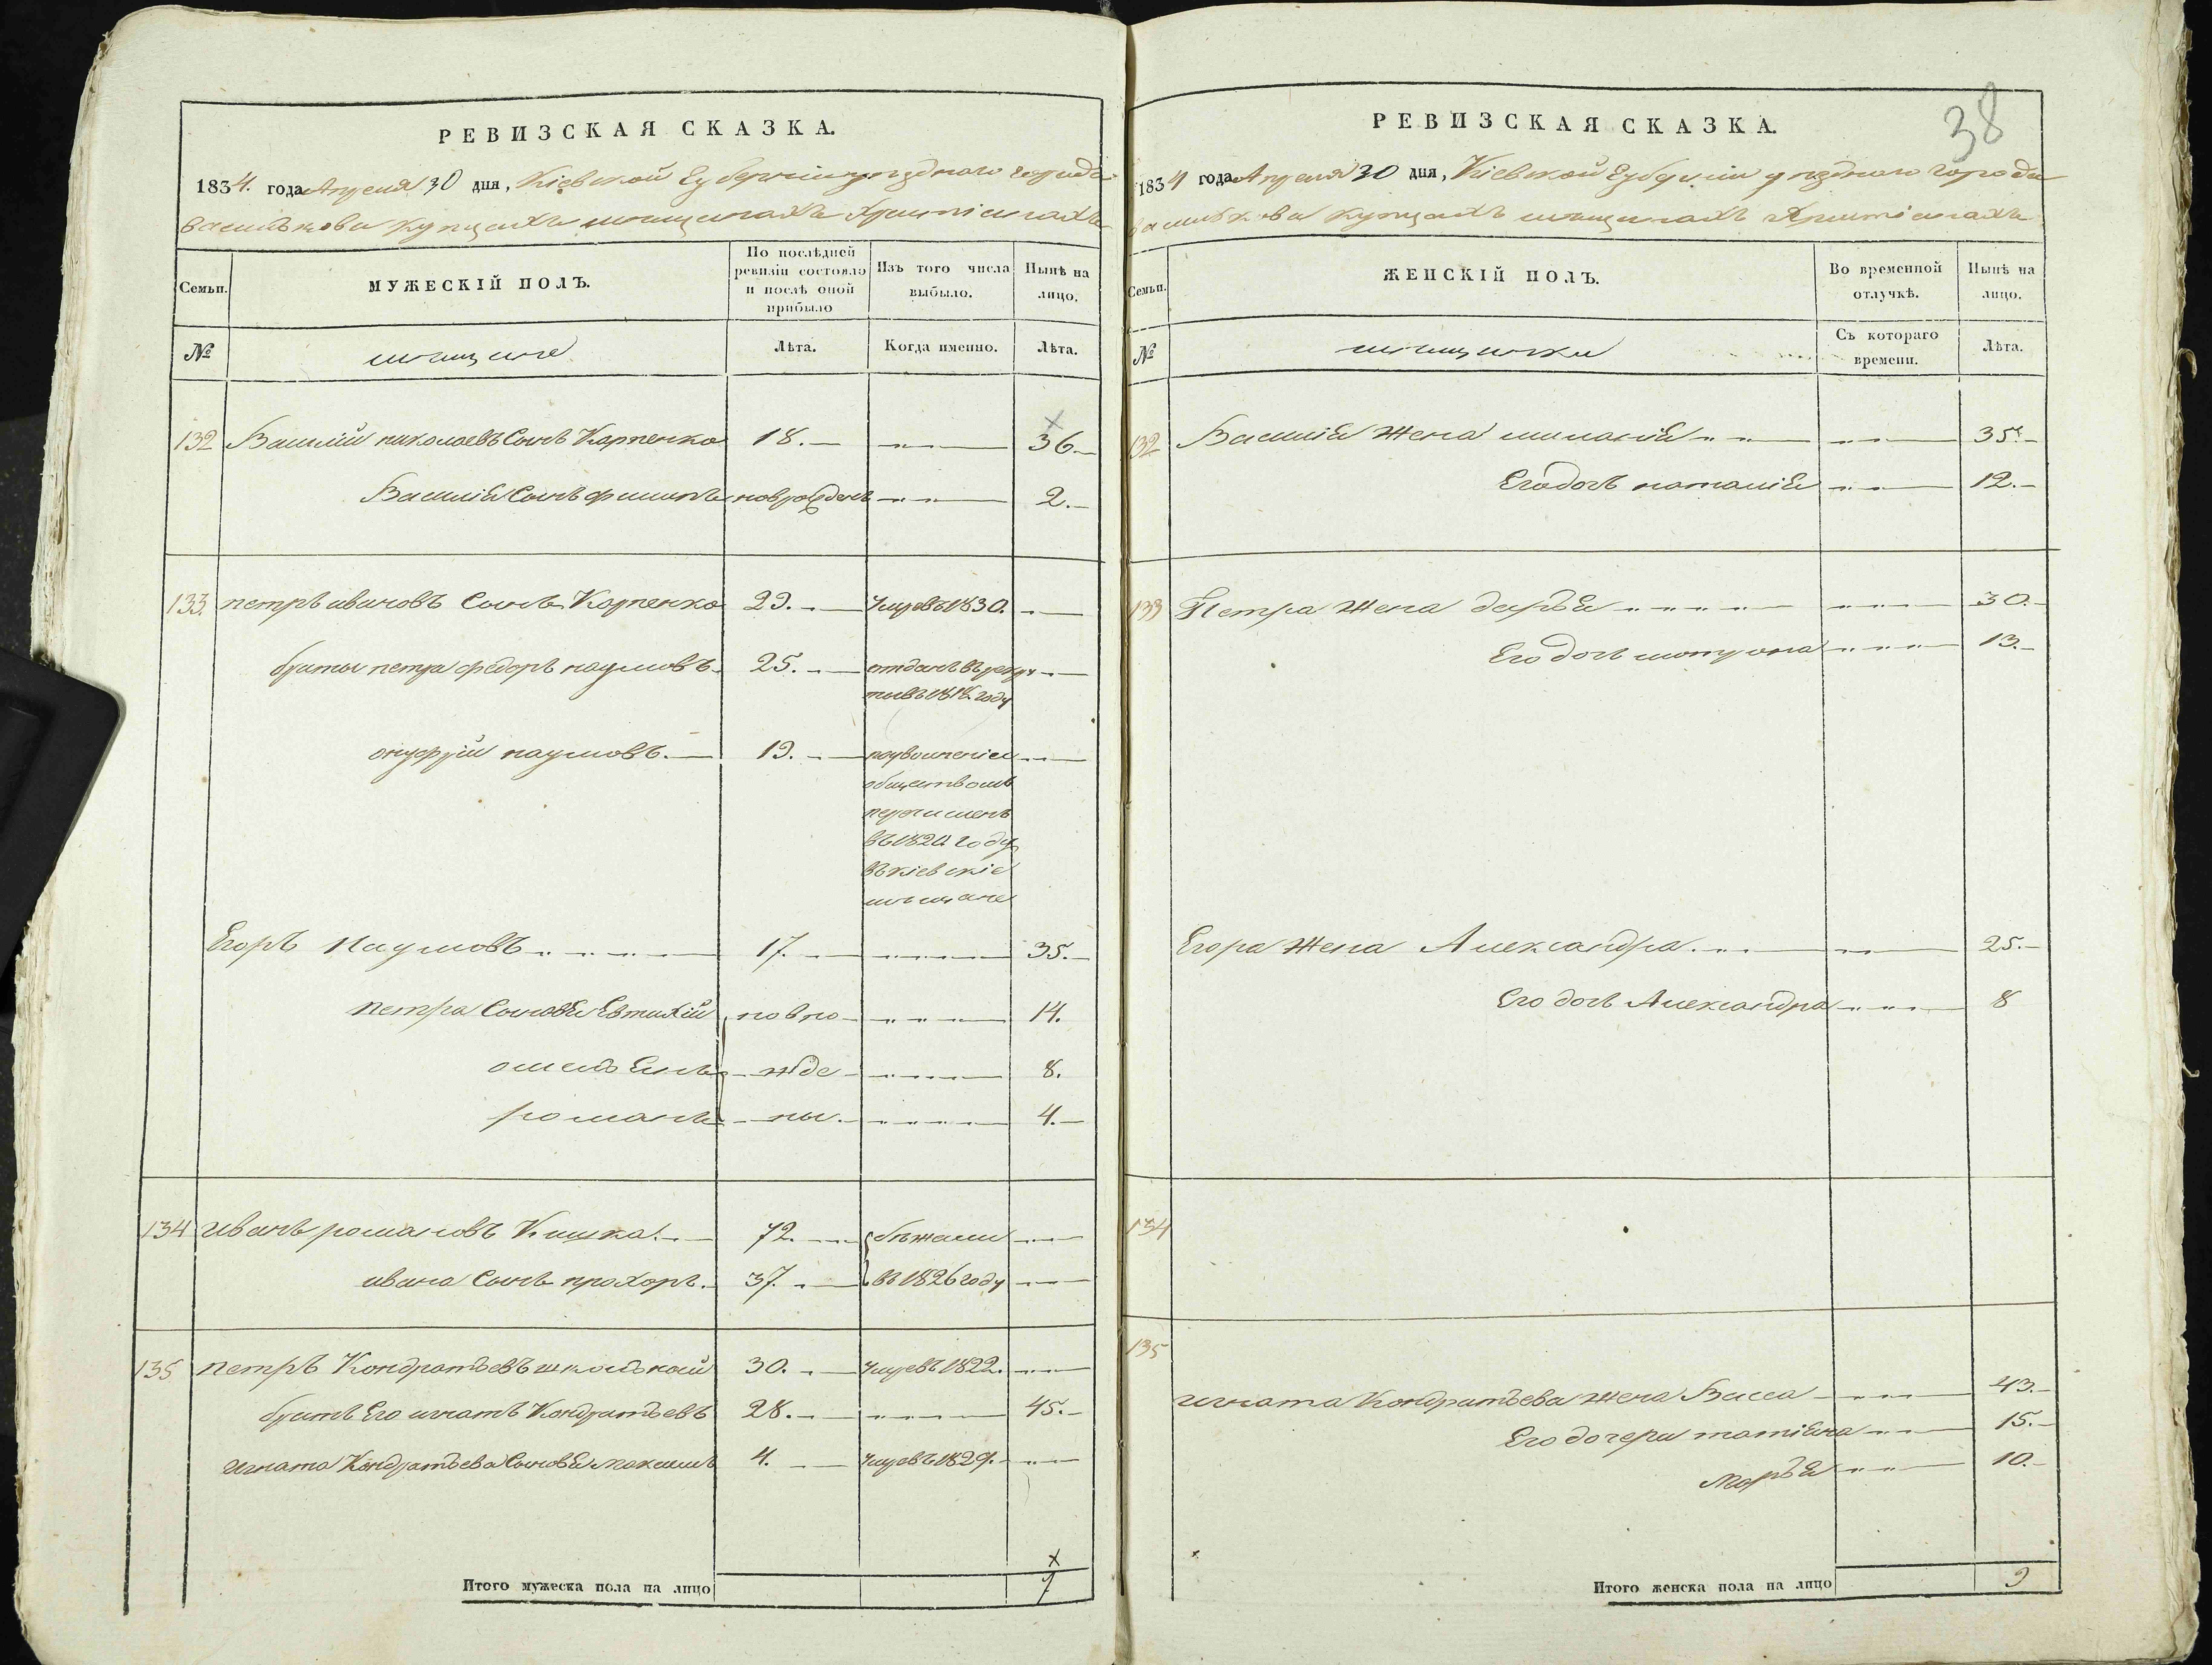 РЕВИЗСКАЯ СКАЗКА.
1834. года Апреля 30 дня, Кіевской Губерніи уезднаго города
василькова Купцахъ мещанахъ Христіанахъ
Семьи. МУЖЕСКІЙ ПОЛЪ. По послѣдней ревизіи состояло и послѣ оной прибыло Изъ того числа выбыло. Нынѣ на лицо.
№ мещане Лѣта. Когда именно. Лѣта.
132 Василій николаевъ Сынъ Карпенко 18. 36
Василія Сынъ филипъ новрожденъ 2.
133. петръ ивановъ Сынъ Карпенко 29. Умре въ 1830.
братья петра федоръ наумовъ 25. отданъ въ рекру
ты въ 1818 году
онуфрій наумовъ. 19. поувольненію
обществомъ
перечисленъ
въ 1820 году
въ кіевскіе
мещане
Егоръ Наумовъ 17. 35.
Петра Сыновья Евтихій новро 14.
омельянъ жде 8.
романъ ны. 4.
134 иванъ романовъ Кишка. 72. бежали
ивана Сынъ прохоръ. 37. въ 1826 году
135 петръ Кондратьевъ школьной 30. Умре въ 1822.
братъ Его игнатъ Кондратьевъ 28. 45.
Игната Кондратьева Сыновья максимъ 4. Умре въ 1829.
Итого мужеска пола на лицо 7
38
РЕВИЗСКАЯ СКАЗКА.
1834 года Апреля 30 дня, Кіевской Губерніи уезднаго города
василькова Купцахъ мещанахъ Христіанахъ
Семьи. ЖЕНСКІЙ ПОЛЪ. Во временной отлучкѣ. Нынѣ на лицо.
№ мещанки Съ котораго времени. Лѣта.
132 Василія Жена миланія 35.
Его дочь наталія 12.
133 Петра Жена дарья 30.
Его дочь мотрона 13.
Егора Жена Александра. 25.
Его дочь Александра 8
134
135
игната Кондратьева Жена Васса 43.
Его дочери татіяна 15.
Марья 10.
Итого женска пола на лицо 9